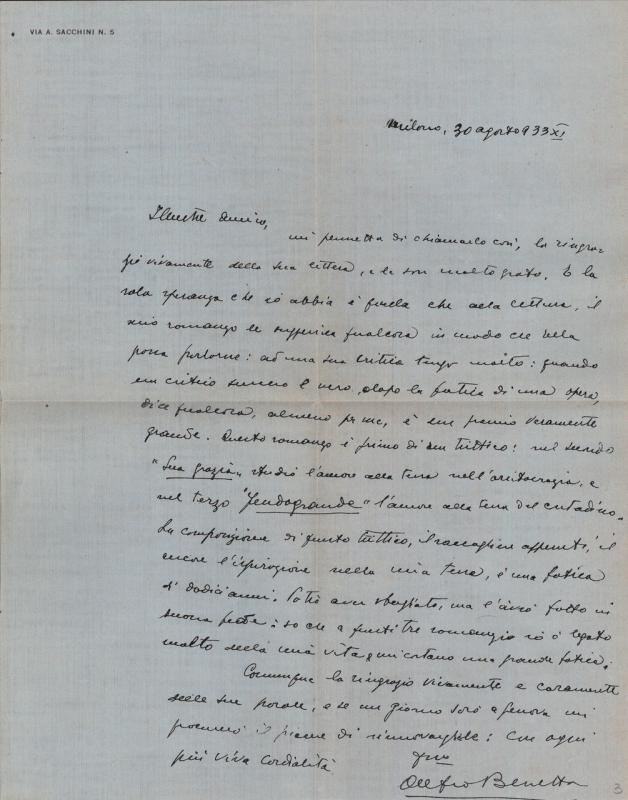 VIA A. SACCHINI N. 5
Milano, 30 agosto 933 XI
Illustre Amico,
mi permetta di chiamarlo così, la ringra-
zio vivamente della sua lettera, e le son molto grato. E la
sola speranza che io abbia è quella che alla lettura, il
mio romanzo le suggerisca qualcosa in modo che ella
possa parlarne: ad una sua critica tengo molto: quando
un critico sincero e vero, dopo la fatica di una opera,
dice qualcosa, almeno per me, è un premio veramente
grande. Questo romanzo è primo di un trittico: nel secondo
"Sua grazia" studio l'amore alla terra nell'aristocrazia, e
nel terzo "Feudogrande" l'amore alla terra del cittadino.
La composizione di questo trittico, il raccogliere appunti, il
cercare l'ispirazione nella mia terra, è una fatica
di dodici anni. Potrò aver sbagliato, ma l'avrò fatto in
buona fede: so che a questi tre romanzi io ò legato
molto della mia vita e mi costano una grande fatica.
Comunque la ringrazio vivamente e caramente
delle sue parole, e se un giorno sarò a Genova mi
procurerò il piacere di rinnovargliele: Con ogni
più viva cordialità
suo